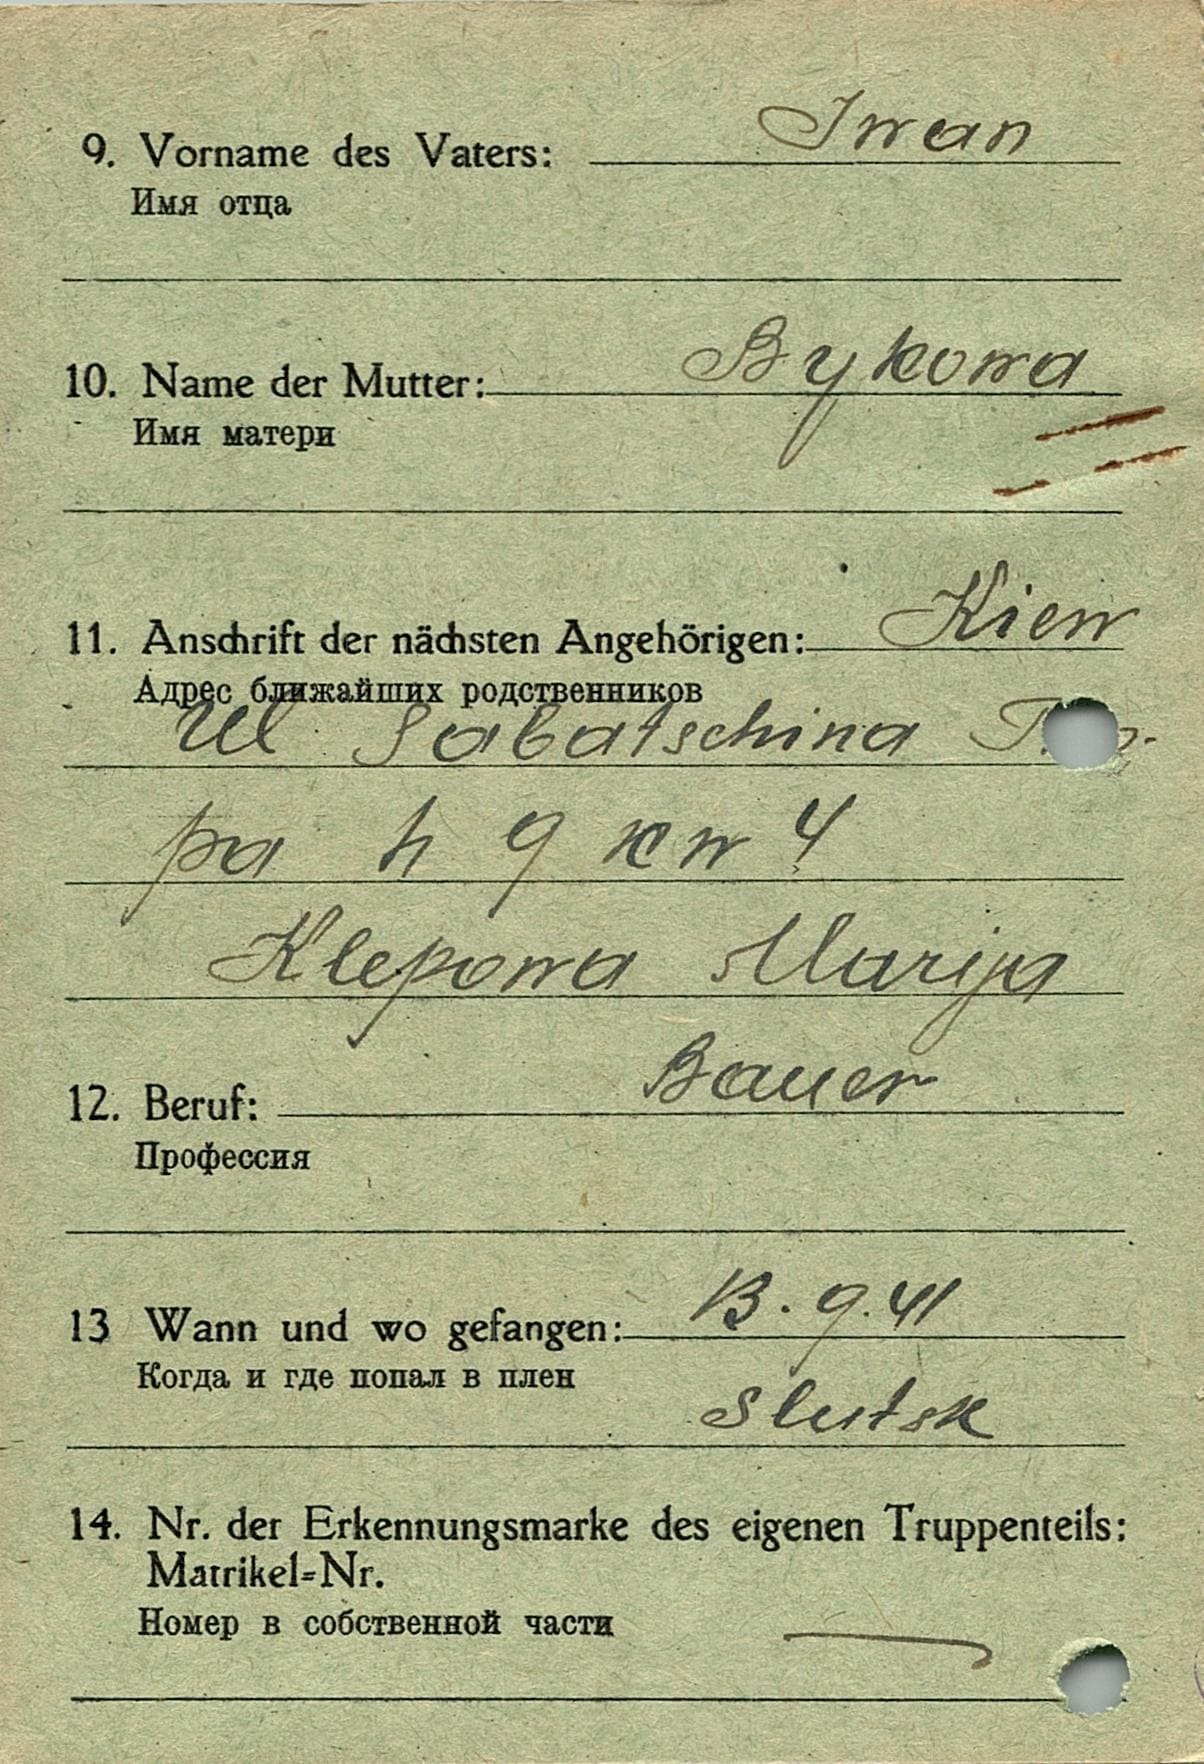 9. Vorname des Vaters: Iwan
Имя отца
10. Name der Mutter: Bykowa
Имя матери
11. Anschrift der nächsten Angehörigen: Kiew
Адрес ближайших родственников
Ul Sabatschina
pa h 9 kw 4
Klepowa Marija
12. Beruf: Bauer
Профессия
13 Wann und wo gefangen: 13. 9. 41
Когда и где попал в плен
Slutsk
14. Nr. der Erkennungsmarke des eigenen Truppenteils:
Matrikel=Nr.
Номер в собственной части